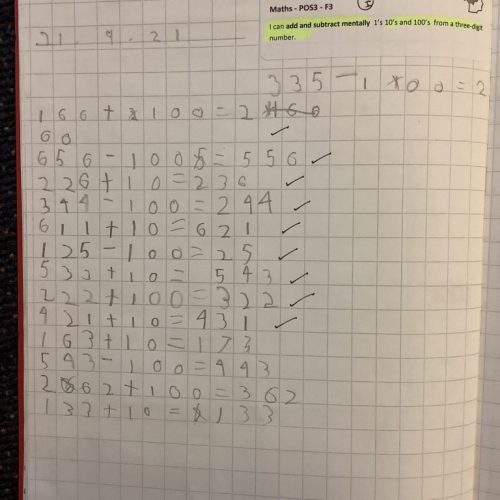 Maths - POS3 - F3
I can add and subtract mentally 1's 10's and 100's from a three-digit
number.
21.9.21
335-100=2
166+100=2
60
656-100=556
226+10=236
344-100=244
611+10=621
125-100=25
533+10=543
222+100=322
421+10=431
163+10=173
543-100=443
262+100=362
133+10=133